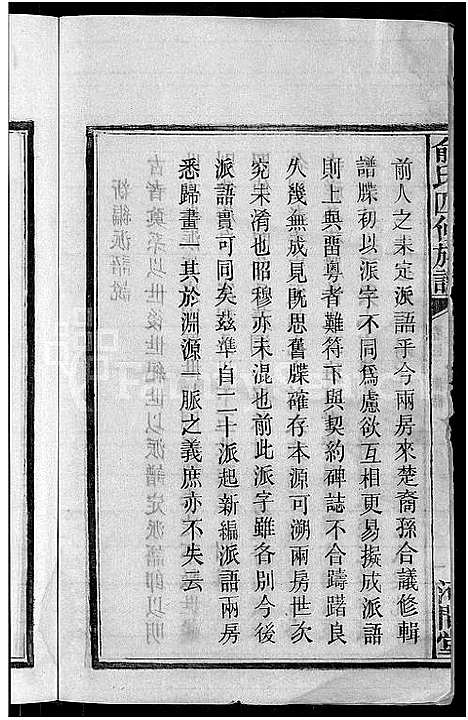 前人之未定派語乎今兩房來楚裔孫合議修輯
譜牒初以派字不同爲慮欲互相更易擬成派語
則上與畱粵者難符下與契約碑誌不合躊躇良
久幾無成見旣思舊牒確存本源可溯兩房世次
究未淆也昭穆亦未混也前此派字雖各別今後
派語實可同矣茲準自二十派起新編派語兩房
悉歸畫一其於淵源一脈之義庶亦不失云
新編派語說
俞氏四修族譜